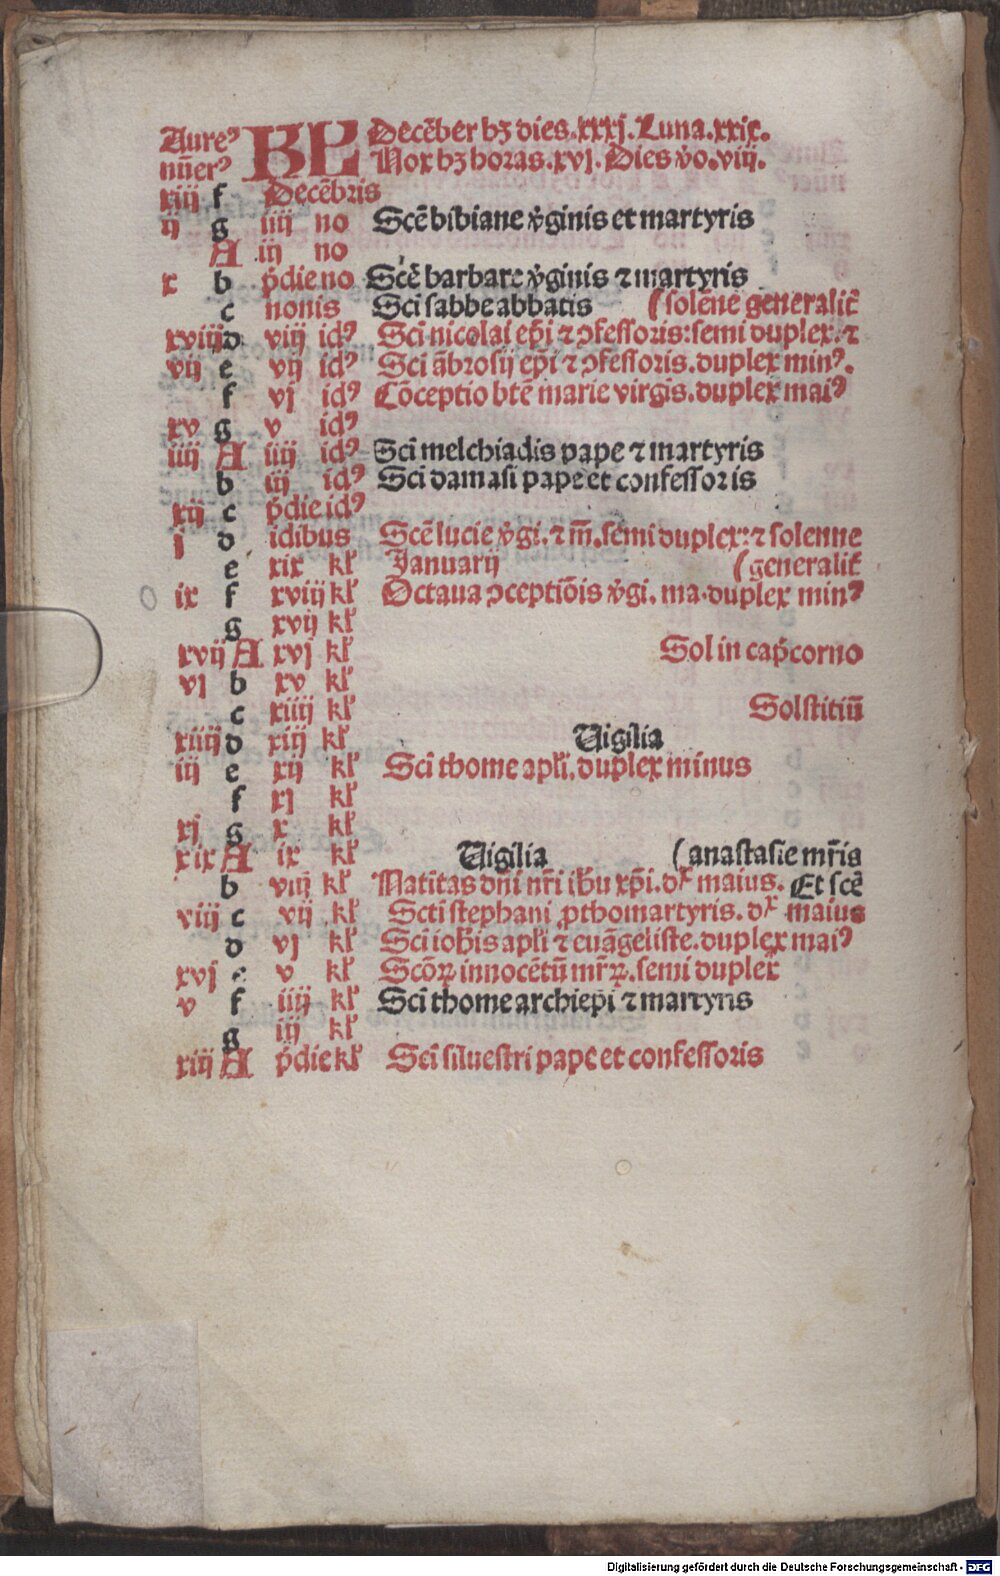 Aureꝰ KL Decēber hꝫ dies.xxxj.Luna.xxix.
nūerꝰ Nox hꝫ horas.xvj. Dies v̓o.viij.
xiij f Decēbris
ij g iiij no Scē bibiane v̓ginis et martyris
A iij no
x b p̓die no Scē barbare v̓ginis ⁊ martyris
c nonis Sci sabbe abbatis (solēne generalit̓
xviij d viij idꝰ Sci nicolai ep̄i ⁊ ↄfessoris:semi duplex.⁊
vij e vij idꝰ Sci ābrosij ep̄i ⁊ ↄfessoris.duplex minꝰ.
f vj idꝰ Cōceptio btē marie virgis.duplex maiꝰ
xv g v idꝰ
iiij A iiij idꝰ Sci melchiadis pape ⁊ martyris
b iij idꝰ Sci damasi pape et confessoris
xij c p̓die idꝰ
j d idibus Scē lucie v̓gi.⁊ m̄.semi duplex:⁊ solenne
e xix kl̓ Januarij (generalit̓
ix f xviij kl̓ Octaua ↄceptiōis v̓gi. ma.duplex minꝰ
g xvij kl̓
xvij A xvj kl̓ Sol in cap̓corno
vj b xv kl̓
c xiiij kl̓ Solstitiū
xiiij d xiij kl̓ Uigilia
iij e xij kl̓ Sci thome apl̓i.duplex minus
f xj kl̓
xj g x kl̓
xix A ix kl̓ Uigilia (anastasie mr̄is
b viij kl̓ Natitas dn̄i nr̄i ih̄u xp̄i.dx maius. Et scē
viij c vij kl̓ Scti stephani ꝓthomartyris.dx maius
d vj kl̓ Sci ioh̄is apl̓i ⁊ euāgeliste.duplex maiꝰ
xvj e v kl̓ Scōꝝ innocētū mr̄ꝝ.semi duplex
v f iiij kl̓ Sci thome archiep̄i ⁊ martyris
g iij kl̓
xiij A p̓die kl̓ Sci siluestri pape et confessoris
Digitalisierung gefördert durch die Deutsche Forschungsgemeinschaft - DFG